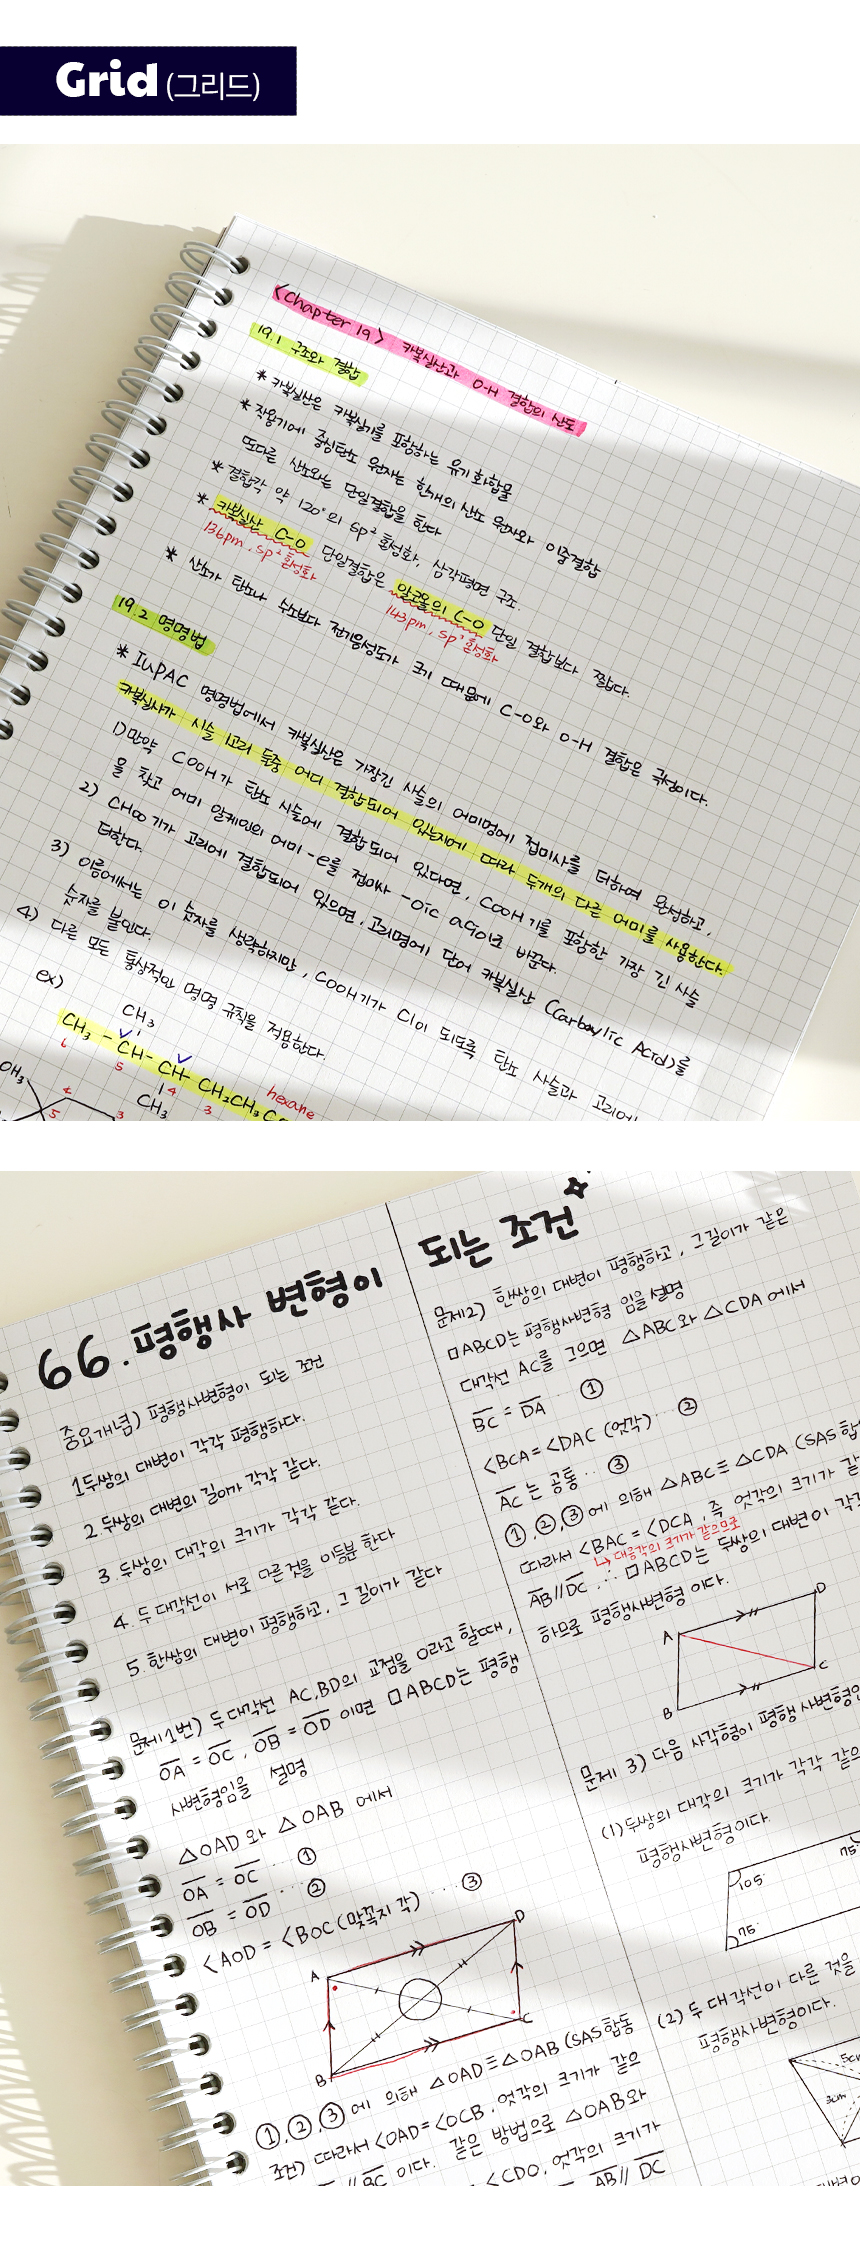 Grid (그리드)
<Chapter 19> 카복실산과 O-H 결합의 산도
19.1 구조와 결합
* 카복실산은 카복실기를 포함하는 유기 화합물
* 작용기에 중심탄소 원자는 한개의 산소 원자와 이중결합
또다른 산소와는 단일결합을 한다
* 결합각 약 120°의 sp² 혼성화, 삼각평면 구조.
* 카복실산 C-O 단일결합은 알코올의 C-O 단일 결합보다 짧다.
136pm, sp² 혼성화
143pm, sp³ 혼성화
* 산소가 탄소나 수소보다 전기음성도가 크기 때문에 C-O와 O-H 결합은 극성이다.
19.2 명명법
* IUPAC 명명법에서 카복실산은 가장긴 사슬의 어미명에 접미사를 더하여 완성하고,
카복실시가 시슬 1고리 둘중 어디 결합되어 있는지에 따라 두개의 다른 어미를 사용한다.
1) 만약 COOH가 탄소 시슬에 결합되어 있다면, COOH기를 포함한 가장 긴 사슬
을 찾고 어미 알케인의 어미 -e를 접미사 -oic acid로 바꾼다.
2) CHOO기가 고리에 결합되어 있으면, 고리명에 단어 카복실산 (Carboxylic Acid)를
더한다.
3) 이름에서는 이 숫자를 생각하지만, COOH기가 C1이 되도록 탄소 사슬과 고리에
숫자를 붙인다.
4) 다른 모든 통상적인 명명 규칙을 적용한다.
ex)
CH₃
CH₃ - CH - CH - CH₂CH₂
6 5 4 3
CH₃
hexane
OH₃
4
5 3
66. 평행사 변형이 되는 조건
중요개념) 평행사변형이 되는 조건
1 두쌍의 대변이 각각 평행하다.
2. 두쌍의 대변의 길이가 각각 같다.
3. 두쌍의 대각의 크기가 각각 같다.
4. 두 대각선이 서로 다른것을 이등분 한다
5. 한쌍의 대변이 평행하고, 그 길이가 같다
문제1번) 두 대각선 AC, BD의 교점을 O라고 할때,
OA = OC, OB = OD 이면 □ABCD는 평행
사변형임을 설명
△OAD와 △OAB 에서
OA = OC ... ①
OB = OD ... ②
<AOD = <BOC (맞꼭지 각) ... ③
A
D
B
C
①, ②, ③에 의해 △OAD ≡ △OAB (SAS합동
조건) 따라서 <OAD = <OCB, 엇각의 크기가 같으
// BC 이다. 같은 방법으로 △OAB와
<CDO, 엇각의 크기가
AB // DC
문제2) 한쌍의 대변이 평행하고, 그길이가 같은
□ABCD는 평행사변형 임을 설명
대각선 AC를 그으면 △ABC와 △CDA에서
BC = DA ... ①
<BCA = <DAC (엇각) ... ②
AC는 공통 ... ③
①, ②, ③에 의해 △ABC ≡ △CDA (SAS 합
따라서 <BAC = <DCA, 즉 엇각의 크기가 같
↳ 대응각의 크기가 같으므로
AB // DC ∴ □ABCD는 두쌍의 대변이 각각
하므로 평행사변형 이다.
A
D
B
C
문제 3) 다음 사각형이 평행사변형인
(1) 두쌍의 대각의 크기가 각각 같으
평행사변형이다.
105°
75°
75°
(2) 두 대각선이 다른 것을
평행사변형이다.
5cm
3cm